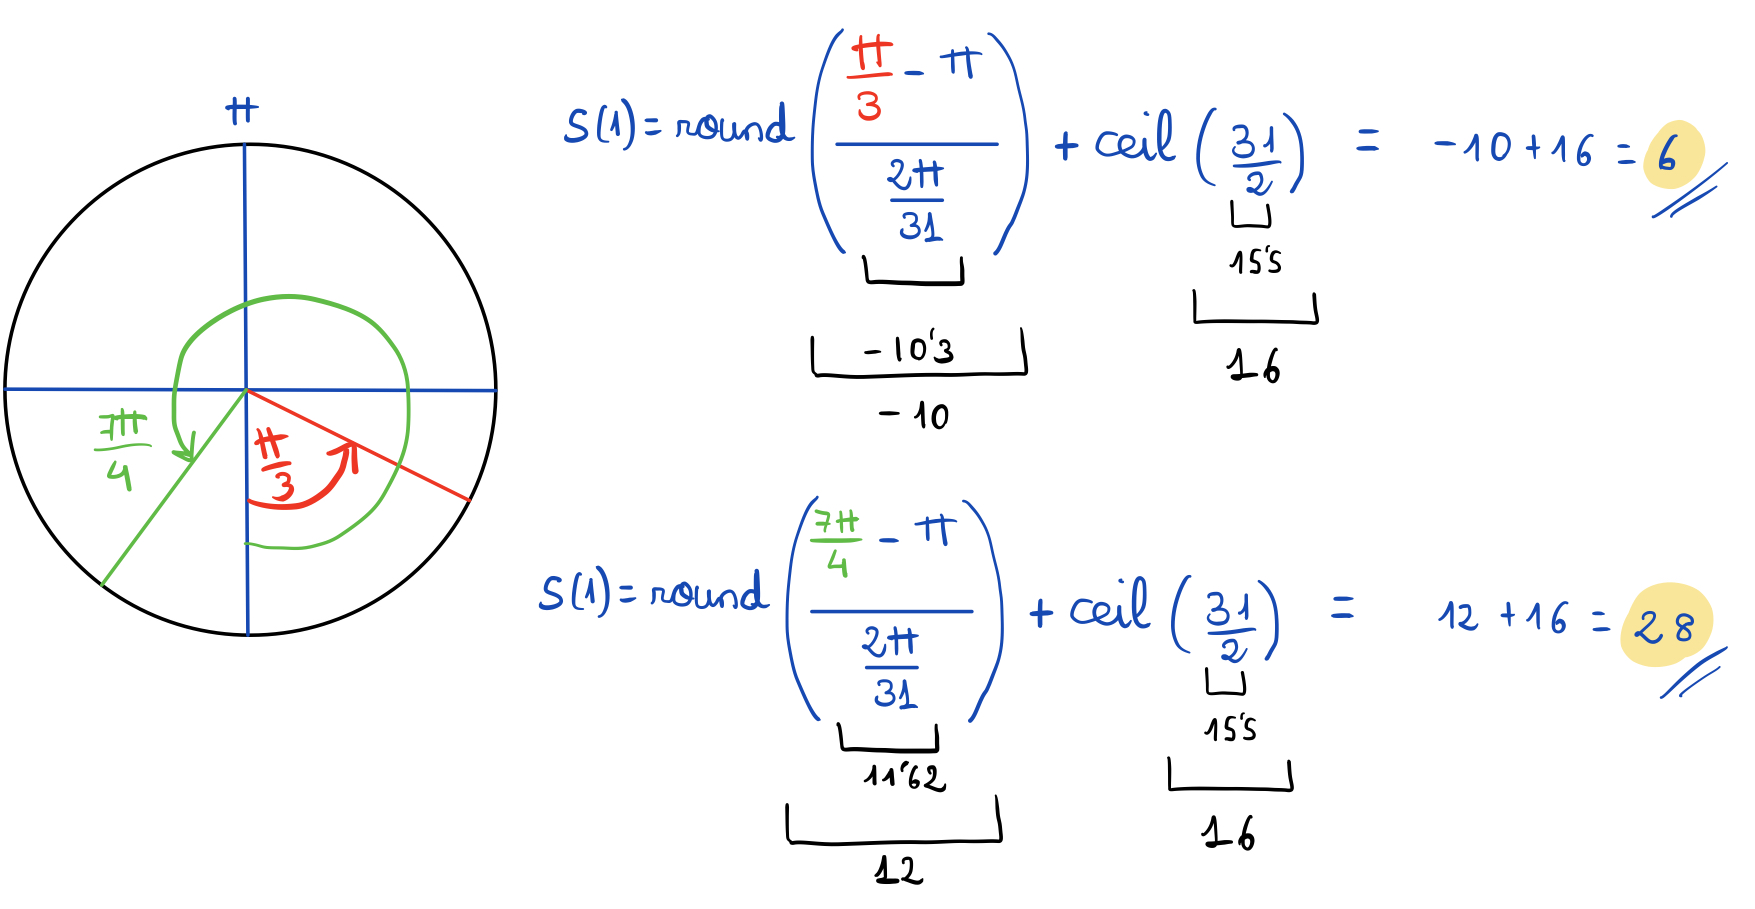 π
7π/4
π/3
S(1) = round ( (π/3 - π) / (2π/31) ) + ceil ( 31/2 ) = -10 + 16 = 6
15's
-10'3
16
-10
S(1) = round ( (7π/4 - π) / (2π/31) ) + ceil ( 31/2 ) = 12 + 16 = 28
15's
11'62
16
12